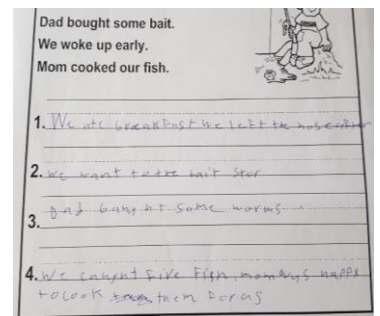 Dad bought some bait.
We woke up early.
Mom cooked our fish.
1. We ate breakfast We left the house
2. we want to the bait stor
dad baught some worms.
3.
4. We caught five Fish, mom was happy
to cook them For us